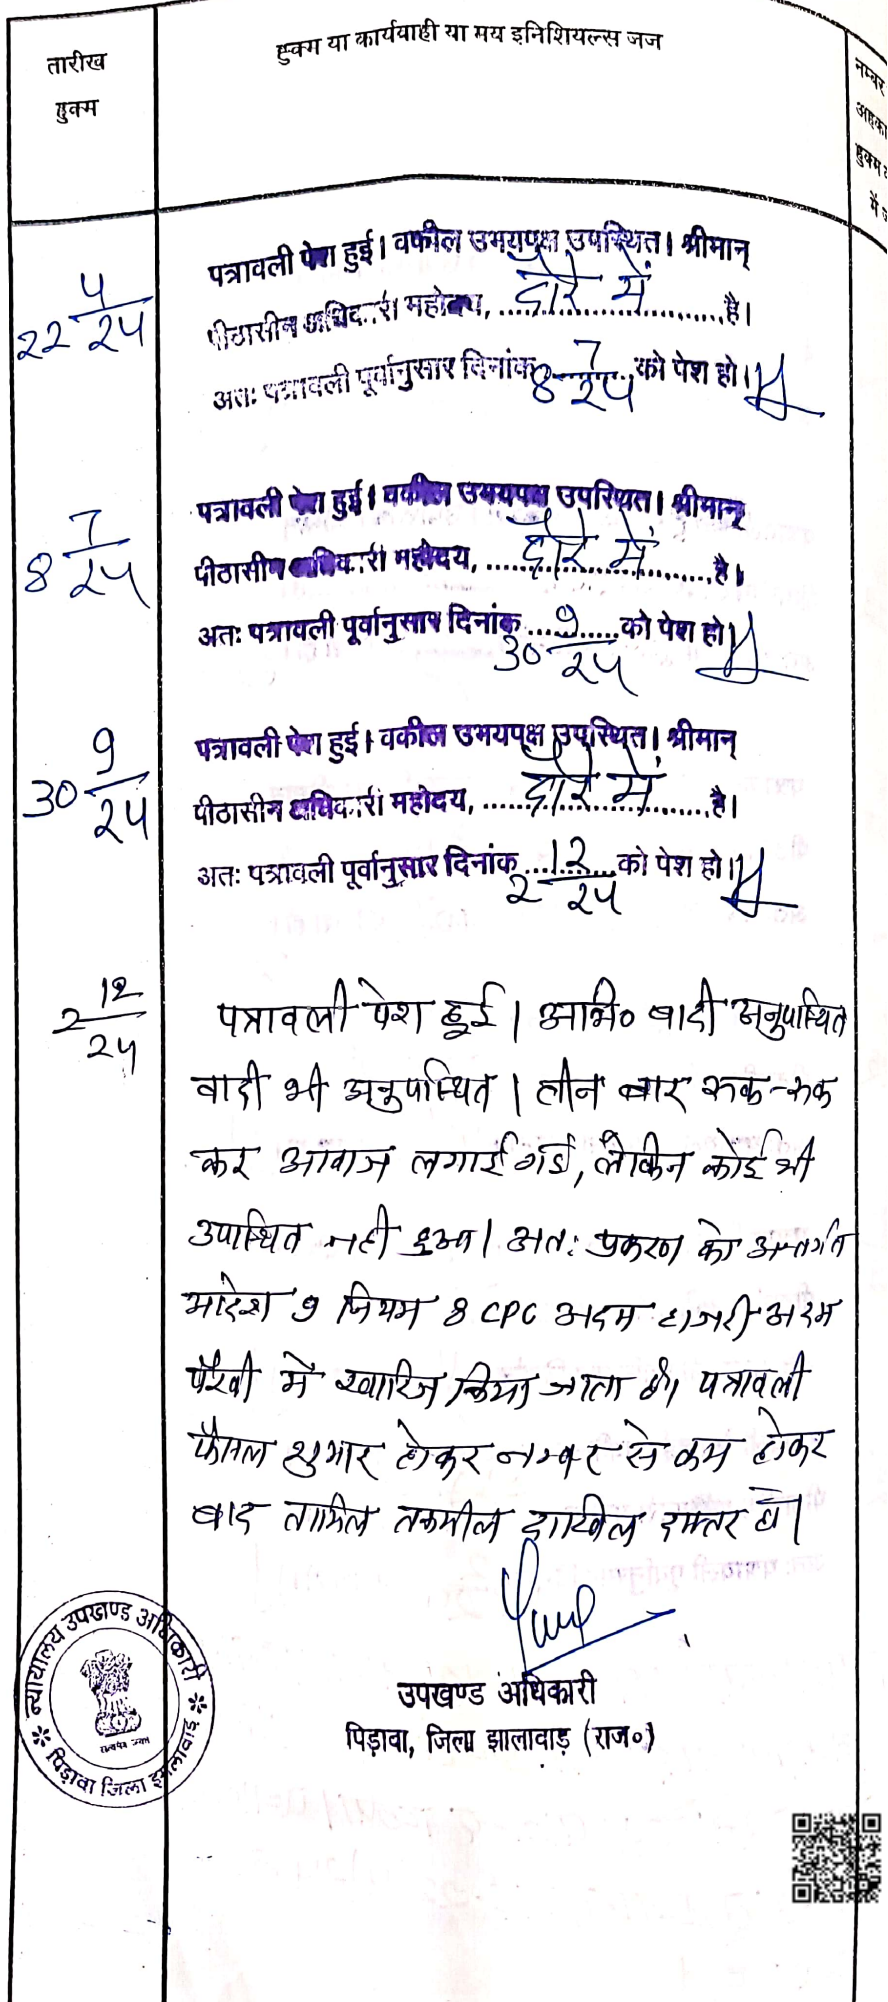 तारीख
हुक्म
हुक्म या कार्यवाही या मय इनिशियल्स जज
नम्बर
अहका
हुक्म
में
22 4/24
पत्रावली पेश हुई। वकील उभयपक्ष उपस्थित। श्रीमान्
पीठासीन अधिकारी महोदय, दौरे में है।
अतः पत्रावली पूर्वानुसार दिनांक 8 7/24 को पेश हो।
8 7/24
पत्रावली पेश हुई। वकील उभयपक्ष उपस्थित। श्रीमान्
पीठासीन अधिकारी महोदय, दौरे में है।
अतः पत्रावली पूर्वानुसार दिनांक 30 9/24 को पेश हो।
30 9/24
पत्रावली पेश हुई। वकील उभयपक्ष उपस्थित। श्रीमान्
पीठासीन अधिकारी महोदय, दौरे में है।
अतः पत्रावली पूर्वानुसार दिनांक 2 12/24 को पेश हो।
2 12/24
पत्रावली पेश हुई। अभि० वादी अनुपस्थित
वादी भी अनुपस्थित। तीन बार रुक-रुक
कर आवाज लगाई गई, लेकिन कोई भी
उपस्थित नही हुआ। अतः प्रकरण को अन्तर्गत
आदेश 9 नियम 8 CPC अदम हाजरी अदम
पैरवी में खारिज किया जाता है। पत्रावली
फैसल शुमार होकर नम्बर से कम होकर
बाद तामिल तकमील दाखिल दफ्तर हो।
उपखण्ड अधिकारी
पिड़ावा, जिला झालावाड़ (राज०)
न्यायालय उपखण्ड अधिकारी
पिड़ावा जिला झालावाड़
सत्यमेव जयते